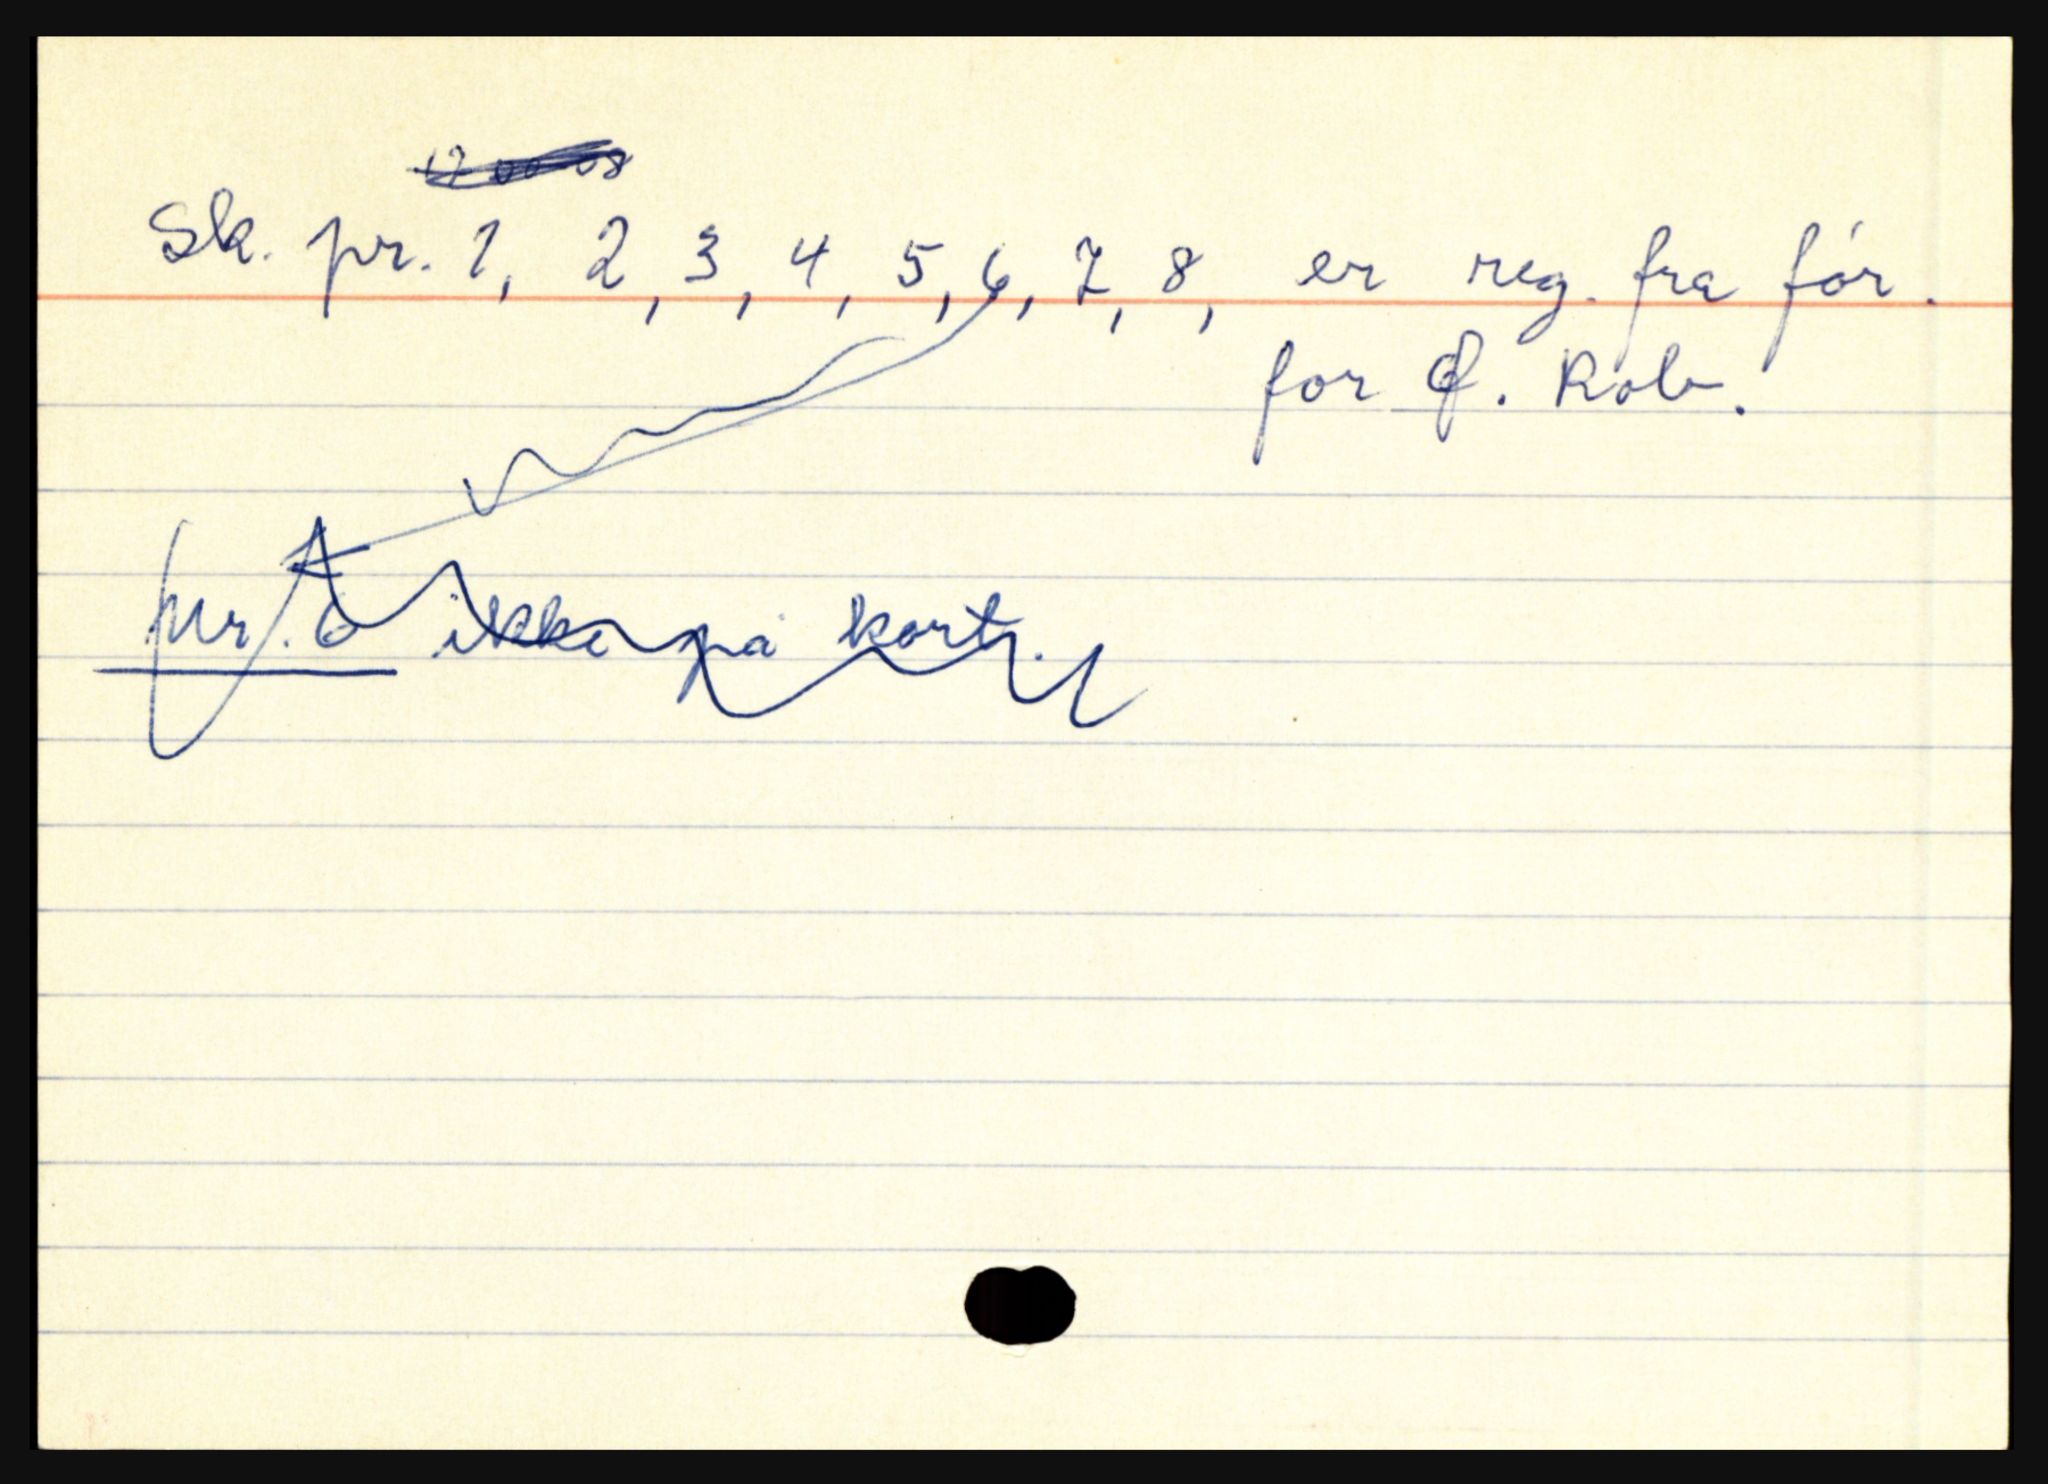 Sk. pr. 1, 2, 3, 4, 5, 6, 7, 8, er reg. fra før.
for . Rob.
Nr. 6 ikke på kort.